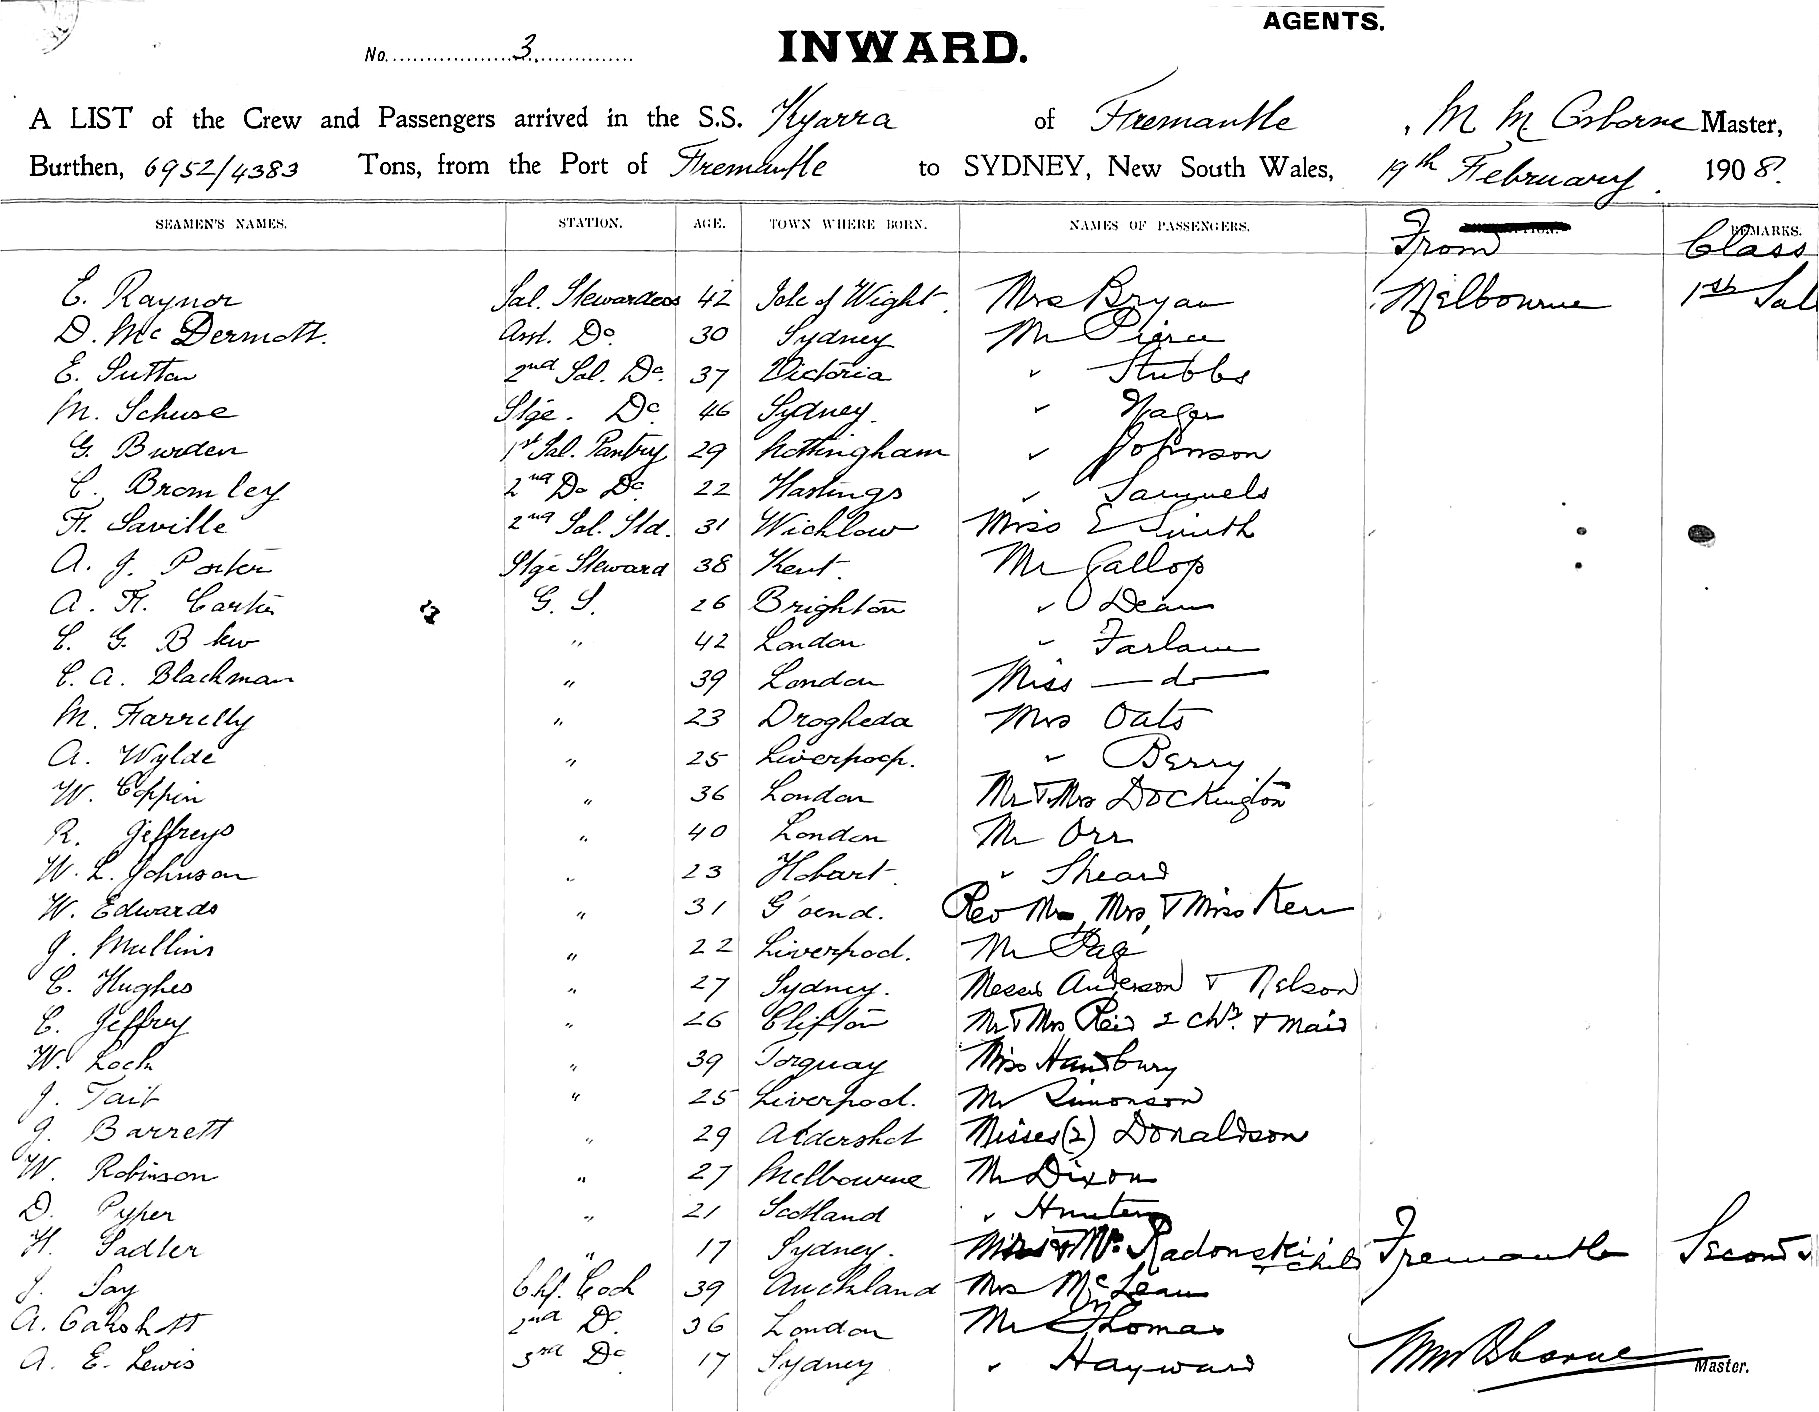 AGENTS.
No. 3. INWARD.
A LIST of the Crew and Passengers arrived in the S.S. Kyarra of Fremantle, M M Osborne Master,
Burthen, 6952/4383 Tons, from the Port of Fremantle to SYDNEY, New South Wales, 19th February. 1908.
SEAMEN'S NAMES. STATION. AGE. TOWN WHERE BORN. NAMES OF PASSENGERS. From REMARKS. Class
E. Raynor Sal. Stewardess 42 Isle of Wight. Mrs Bryan Melbourne 1st Sal
D. Mc Dermott. Asst. Do. 30 Sydney Mr Pierce
E. Sutton 2nd Sal. Do. 37 Victoria " Stubbs
M. Schuse Stge. Do 46 Sydney. " Nager
G. Burden 1st Sal. Pantry 29 Nottingham " Johnson
C. Bromley 2nd Do Do 22 Hastings " Samuels
F. Saville 2nd Sal. Std. 31 Wicklow Miss E Smith
A. J. Porter Stge Steward 38 Kent. Mr Gallop
A. H. Carter G. S. 26 Brighton " Dean
C. G. B " 42 London " Farlam
C. A. Blackman " 39 London Miss — do —
M. Farrelly " 23 Drogheda Mrs Oats
A. Wylde " 25 Liverpool. " Berry
W. Coppin " 36 London Mr & Mrs Dockington
R. Jeffreys " 40 London Mr Orr
W. L. Johnson " 23 Hobart. " Sheard
W. Edwards " 31 G'oend. Rev Mr, Mrs, & Miss Kerr
J. Mullins " 22 Liverpool. Mr Page
C. Hughes " 27 Sydney. Messrs Anderson & Nelson
C. Jeffrey " 26 Clifton Mr & Mrs Reid 2 chn. & maid
W. Loch " 39 Torquay Miss Handbury
J. Tait " 25 Liverpool. Mr Simonson
J. Barrett " 29 Aldershot Misses (2) Donaldson
W. Robinson " 27 Melbourne Mr Dixon
D. Pyper " 21 Scotland " Hunter
H. Sadler " 17 Sydney. Mr. Radonski & child Fremantle Second
J. Say Chf. Cook 39 Auckland Mrs McLean
A. Cakshott 2nd Do. 36 London Mr Thomas
A. E. Lewis 3rd Do 17 Sydney " Hayward MM Osborne Master.